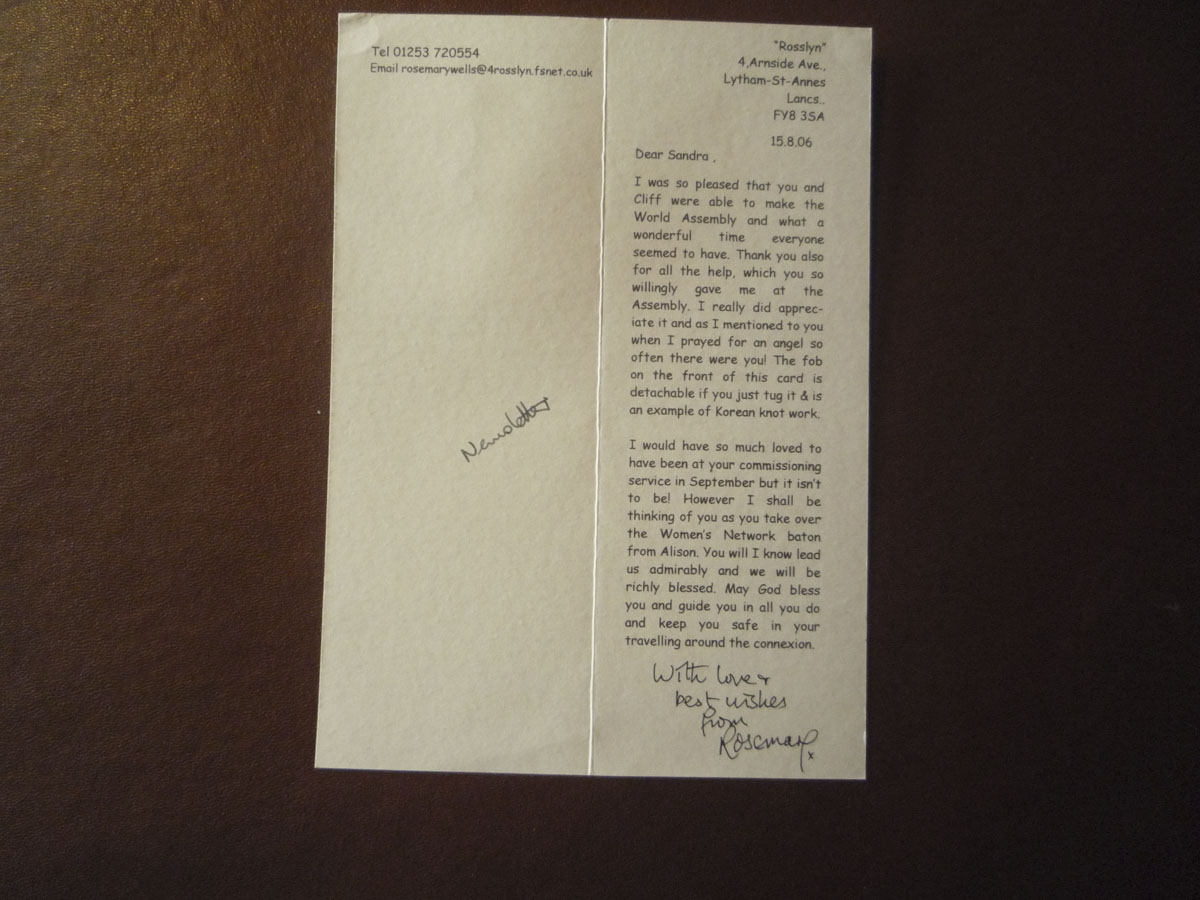 Tel 01253 720554
Email rosemarywells@4rosslyn.fsnet.co.uk
Newsletter
"Rosslyn"
4,Arnside Ave.,
Lytham-St-Annes
Lancs..
FY8 3SA
15.8.06
Dear Sandra ,
I was so pleased that you and
Cliff were able to make the
World Assembly and what a
wonderful time everyone
seemed to have. Thank you also
for all the help, which you so
willingly gave me at the
Assembly. I really did apprec-
iate it and as I mentioned to you
when I prayed for an angel so
often there were you! The fob
on the front of this card is
detachable if you just tug it & is
an example of Korean knot work.
I would have so much loved to
have been at your commissioning
service in September but it isn't
to be! However I shall be
thinking of you as you take over
the Women's Network baton
from Alison. You will I know lead
us admirably and we will be
richly blessed. May God bless
you and guide you in all you do
and keep you safe in your
travelling around the connexion.
With love +
best wishes
from
Rosemary
x